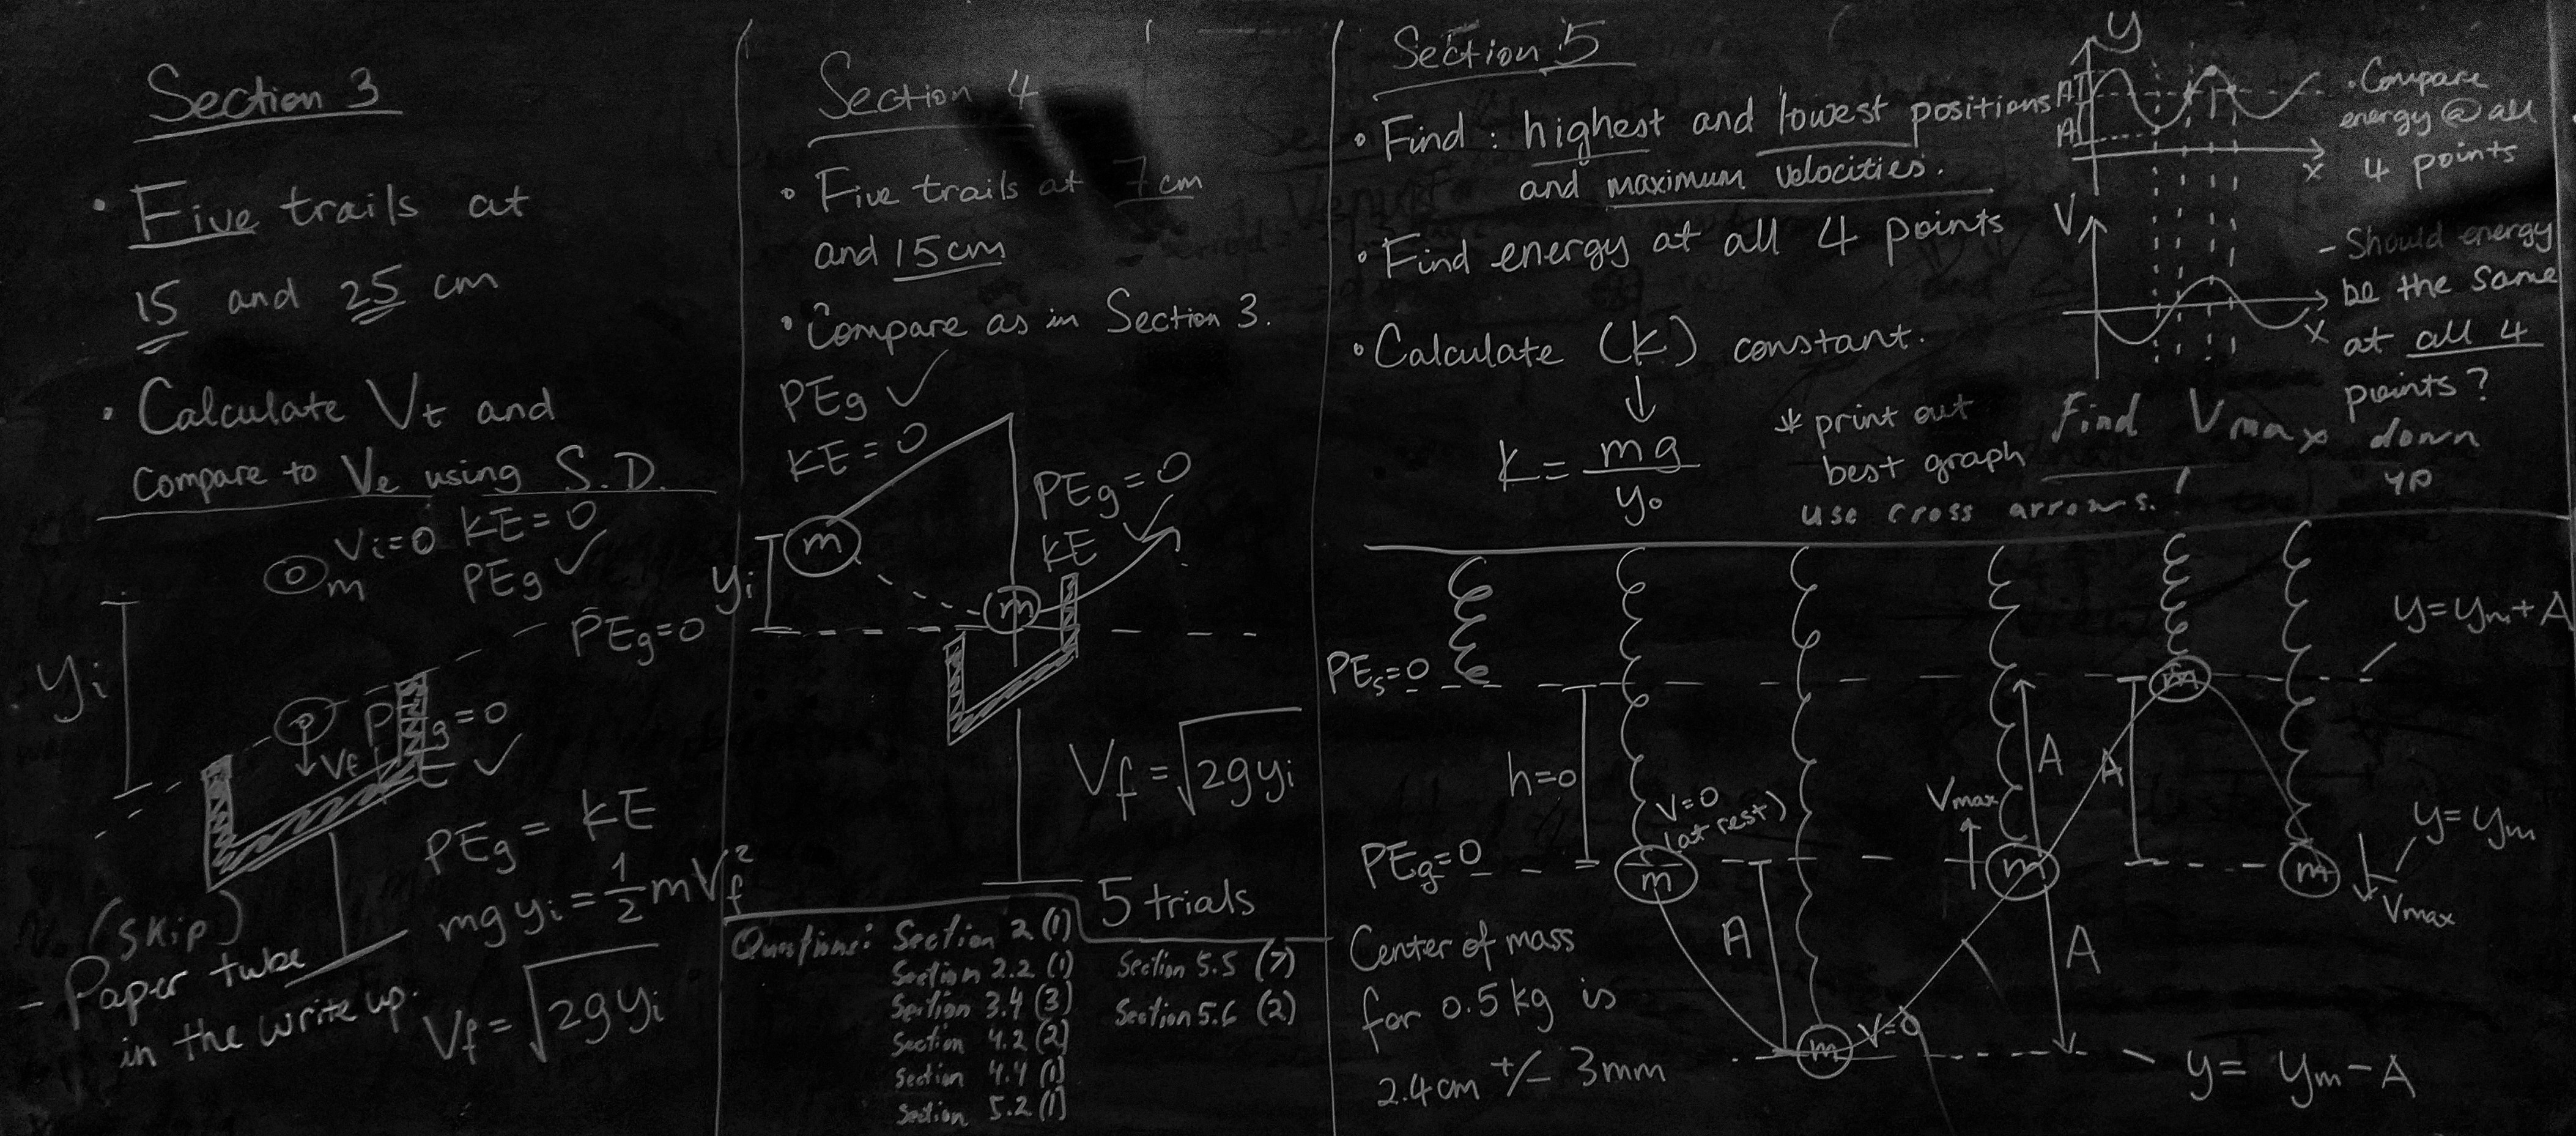 Section 3
• Five trails at
15 and 25 cm
• Calculate Vt and
compare to Ve using S.D.
Vi=0 KE=0
m PEg ✓
yi
PEg=0
Vf
g=0
E ✓
PEg = KE
mgyi = 1/2 mVf²
Vf = √2gyi
(skip)
- Paper tube
in the write up.
Section 4
• Five trails at 7cm
and 15cm
• Compare as in Section 3.
PEg ✓
KE=0
m
yi
PEg=0
KE ✓
m
Vf = √2gyi
5 trials
Questions: Section 2 (1)
Section 2.2 (1)
Section 3.4 (3)
Section 4.2 (2)
Section 4.4 (1)
Section 5.2 (1)
Section 5.5 (7)
Section 5.6 (2)
Section 5
• Find: highest and lowest positions
and maximum velocities.
• Find energy at all 4 points
• Calculate (K) constant.
↓
K = mg/yo
* print out
best graph
use cross arrows.!
y
A
A
x
V
x
• Compare
energy @ all
4 points
- Should energy
be the same
at all 4
points?
Find Vmax down
up
PEs=0
h=0
PEg=0
V=0
(at rest)
m
A
m
V=0
Vmax
m
A
A
A
m
m
Vmax
y=ym+A
y=ym
y= ym-A
Center of mass
for 0.5kg is
2.4cm +/- 3mm